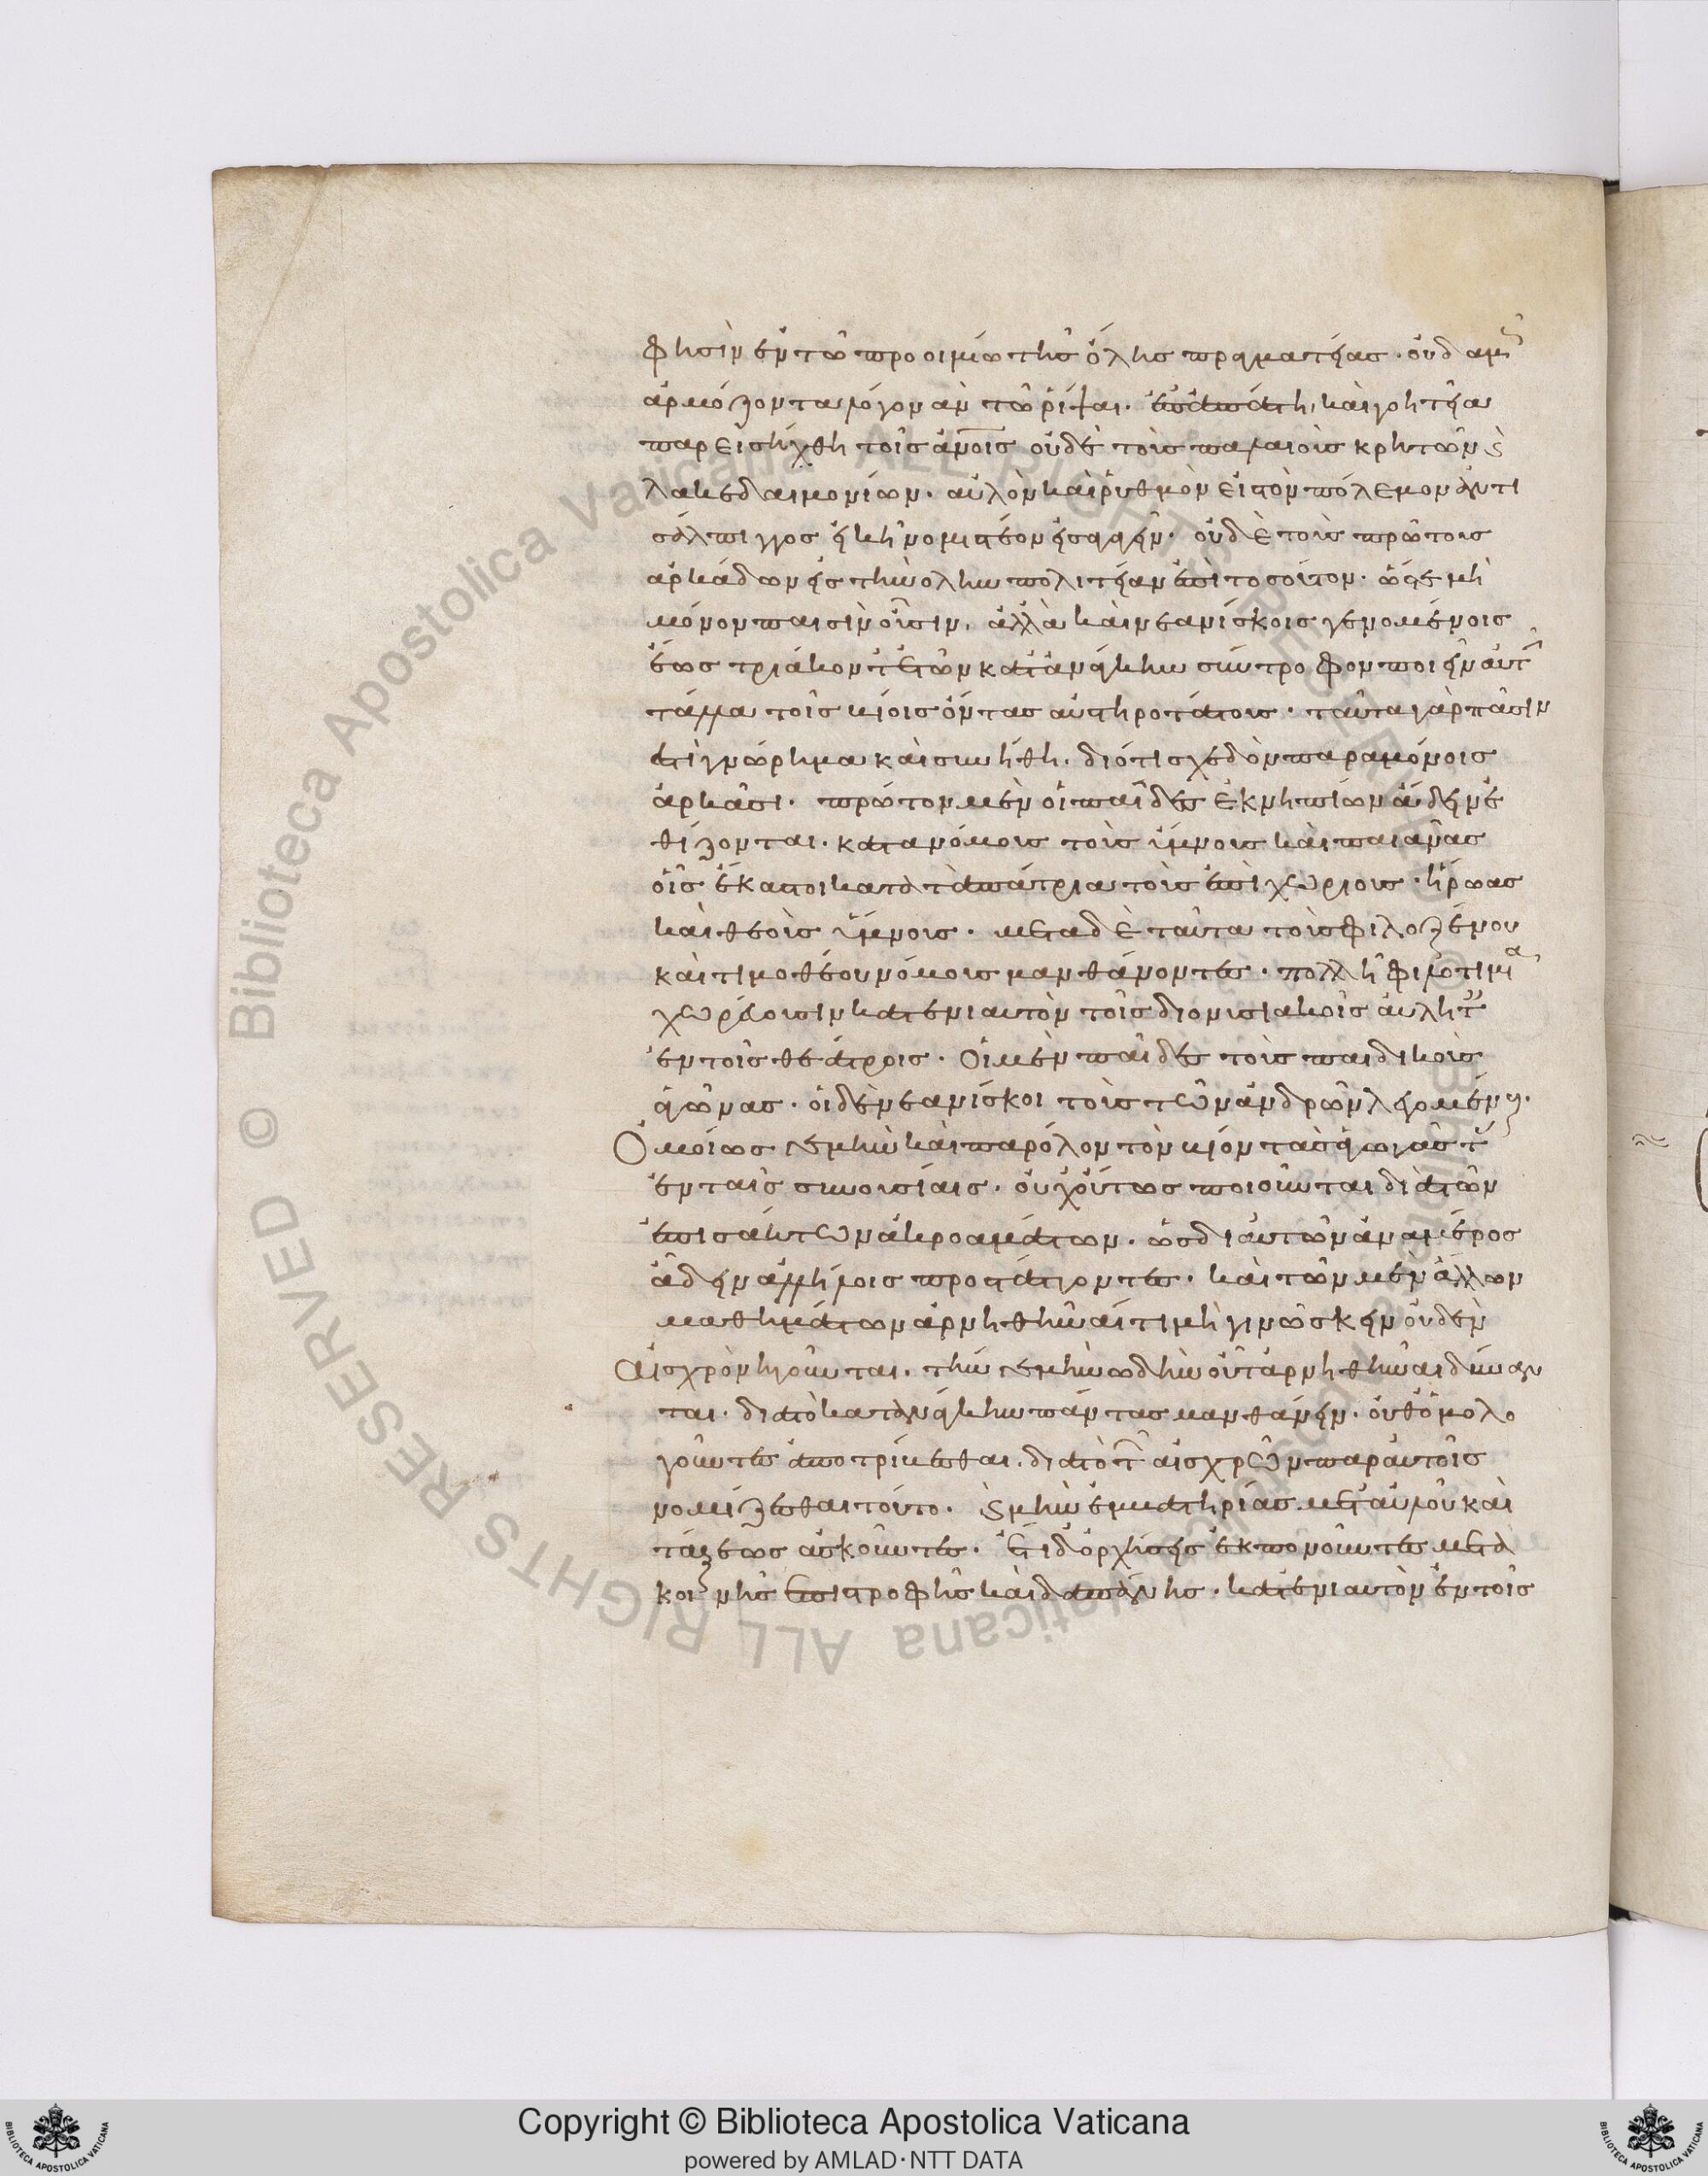 φησὶν ἐν τῶ προοιμίω τῆς ὅλης πραγματείας. οὐδαμῶς
ἁρμόζοντα λόγον αὑτῶ ῥίψαι. ἐπ' ἀπάτη, καὶ γοητεία
παρεισῆχθη τοῖς ἀνοις οὐδὲ τοὺς παλαιοὺς κρητῶν ϗ
λακεδαιμονίων. αὐλὸν καὶ ῥυθμὸν εἰς τὸν πόλεμον ἀντὶ
σάλπιγγος εἰκῆ νομιστέον εἰσαγαγεῖν. οὐδὲ τοὺς πρώτους
ἀρκάδων εἰς τὴν ὅλην πολιτείαν ἐπὶ τοσοῦτον. ὥστε μὴ
μόνον παισὶν οὖσιν, ἀλλὰ καὶ νεανίσκοις γενομένοις
ἕως τριάκοντ' ἐτῶν κατ' ἀνάγκην σύντροφον ποιεῖν αὐτ
τἄλλα τοῖς βίοις ὄντας αὐστηροτάτους. ταῦτα γὰρ πᾶσίν
ἐστι γνώριμα καὶ συνήθη. διότι σχεδὸν παρα μόνοις
ἀρκᾶσι. πρῶτον μὲν οἱ παῖδες ἐκ νηπίων ἄδειν ἐ
θίζονται. κατα νόμους τοὺς ὕμνους καὶ παιᾶνας
οἷς ἕκαστοι κατὰ τὰ πάτρια τοὺς ἐπιχωρίους. ἥρωας
καὶ θεοὺς ὕμνους. μετα δὲ ταῦτα τοὺς φιλοξένου
καὶ τιμοθέου νόμους μανθάνοντες. πολλῆ φιλοτιμία
χωρεύουσιν κατ ἐνιαυτὸν τοῖς διονυσιακοῖς αὐλητ
ἐν τοῖς θεάτροις. Οἱ μὲν παῖδες τοὺς παιδικοὺς
ἀγῶνας. οἱ δὲ νεανίσκοι τοὺς τῶν ἀνδρῶν λεγομένους.
Ὁμοίως γε μὴν καὶ παρ' ὅλον τὸν βίον τὰς ἀγωγὰς τ
ἐν ταῖς συνουσίαις. οὐχ οὕτως ποιοῦνται διὰ τῶν
ἐπισάκτων ἀκροαμάτων. ὡς δι αὐτῶν ἀνα μέρος
ἄδειν ἀλλήλοις προστάττοντες. καὶ τῶν μὲν ἄλλων
μαθημάτων ἀρνηθῆναί τι μὴ γινώσκειν οὐδὲν
Αἰσχρὸν ἡγοῦνται. τήν γε μὴν ὠδὴν οὔτ' ἀρνηθῆναι δύναν
ται. διατὸ κατ' ἀνάγκην πάντας μανθάνειν. οὔθ' ὁμολο
γοῦντες ἀποτρίβεσθαι. διατὸ τ αἰσχρῶν παρ' αὐτοῖς
νομίζεσθαι τοῦτο. ϗ μὴν ἐμβατηρίας μετ' αὐλοῦ καὶ
τάξεως ἀσκοῦντες. ἔτι δ' ὀρχήσεις ἐκπονοῦντες μετὰ
κοινῆς ἐπιστροφῆς καὶ δαπάνης. κατ' ἐνιαυτὸν ἐν τοῖς